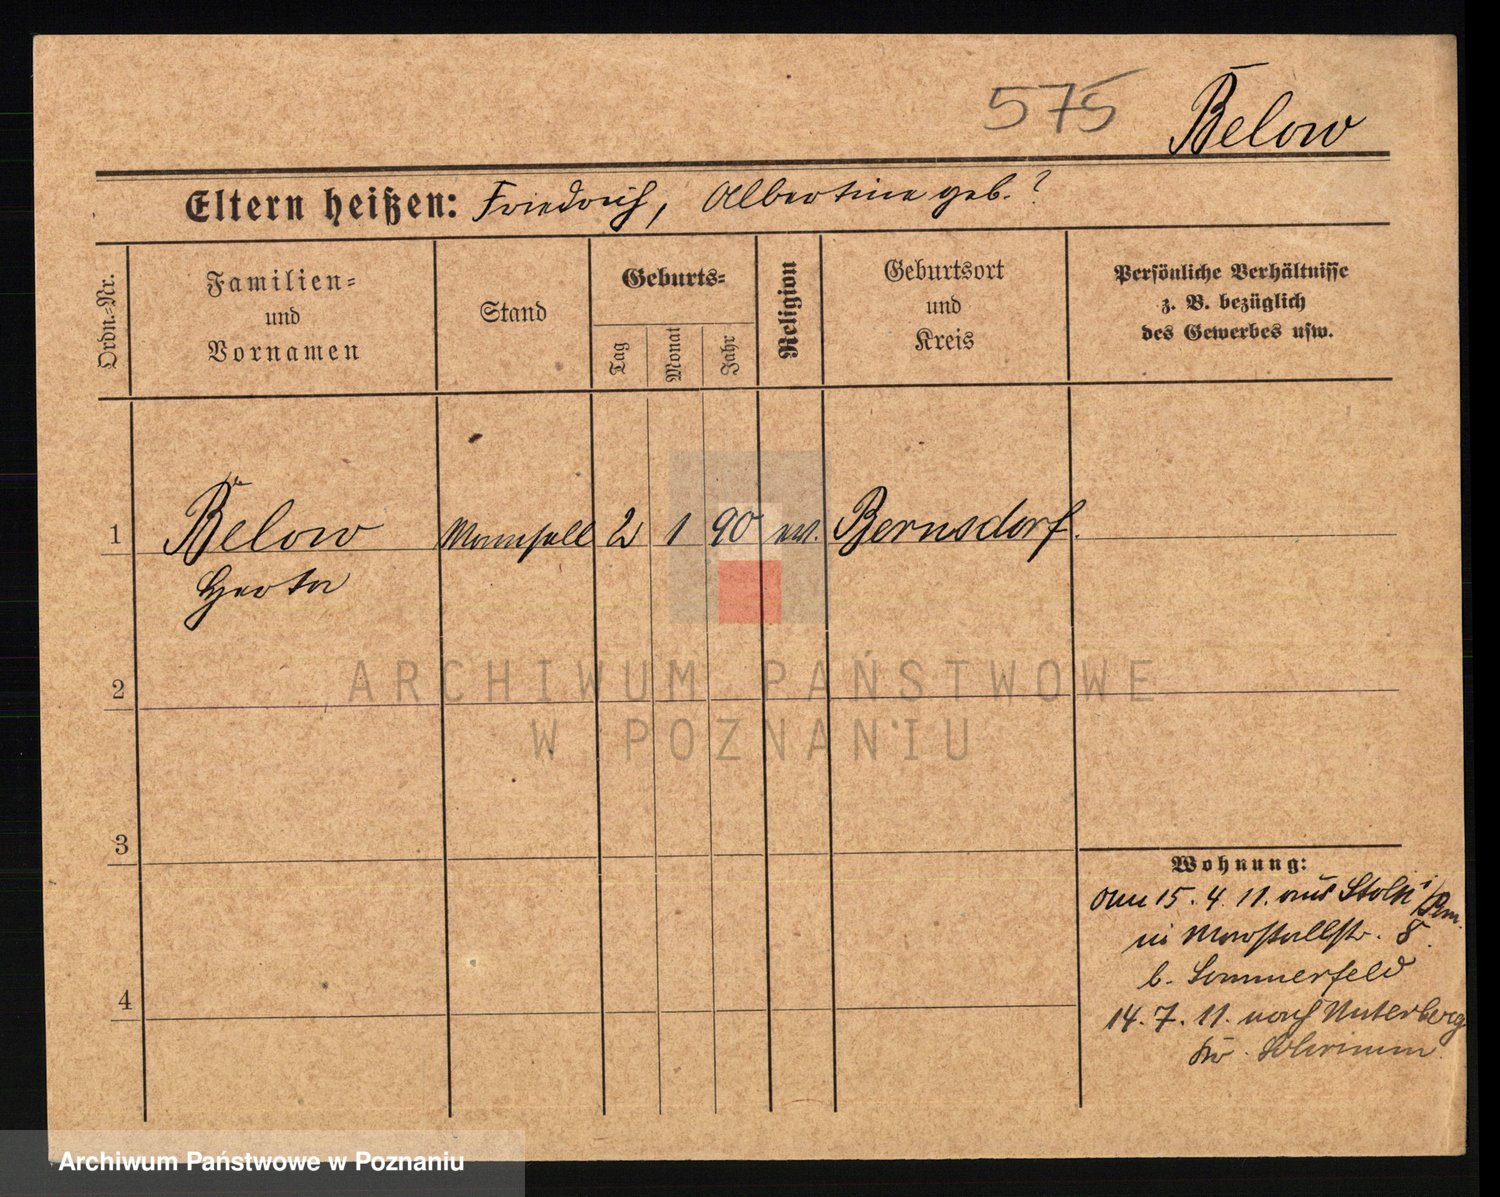 575 Below
Eltern heißen: Friedrich, Albertine geb. ?
Ordn.-Nr.
Familien-
und
Vornamen
Stand
Geburts-
Tag
Monat
Jahr
Religion
Geburtsort
und
Kreis
Persönliche Verhältnisse
z. B. bezüglich
des Gewerbes usw.
1 Below Mamsell 2 1 90 ev. Bernsdorf.
Herta
2
3
4
Wohnung:
Am 15. 4. 11. aus Stolp i/Pm.
in Marstallstr. 8.
b. Sommerfeld
14. 7. 11. nach Unterberg
Kr. Schrimm
ARCHIWUM PAŃSTWOWE
W POZNANIU
Archiwum Państwowe w Poznaniu